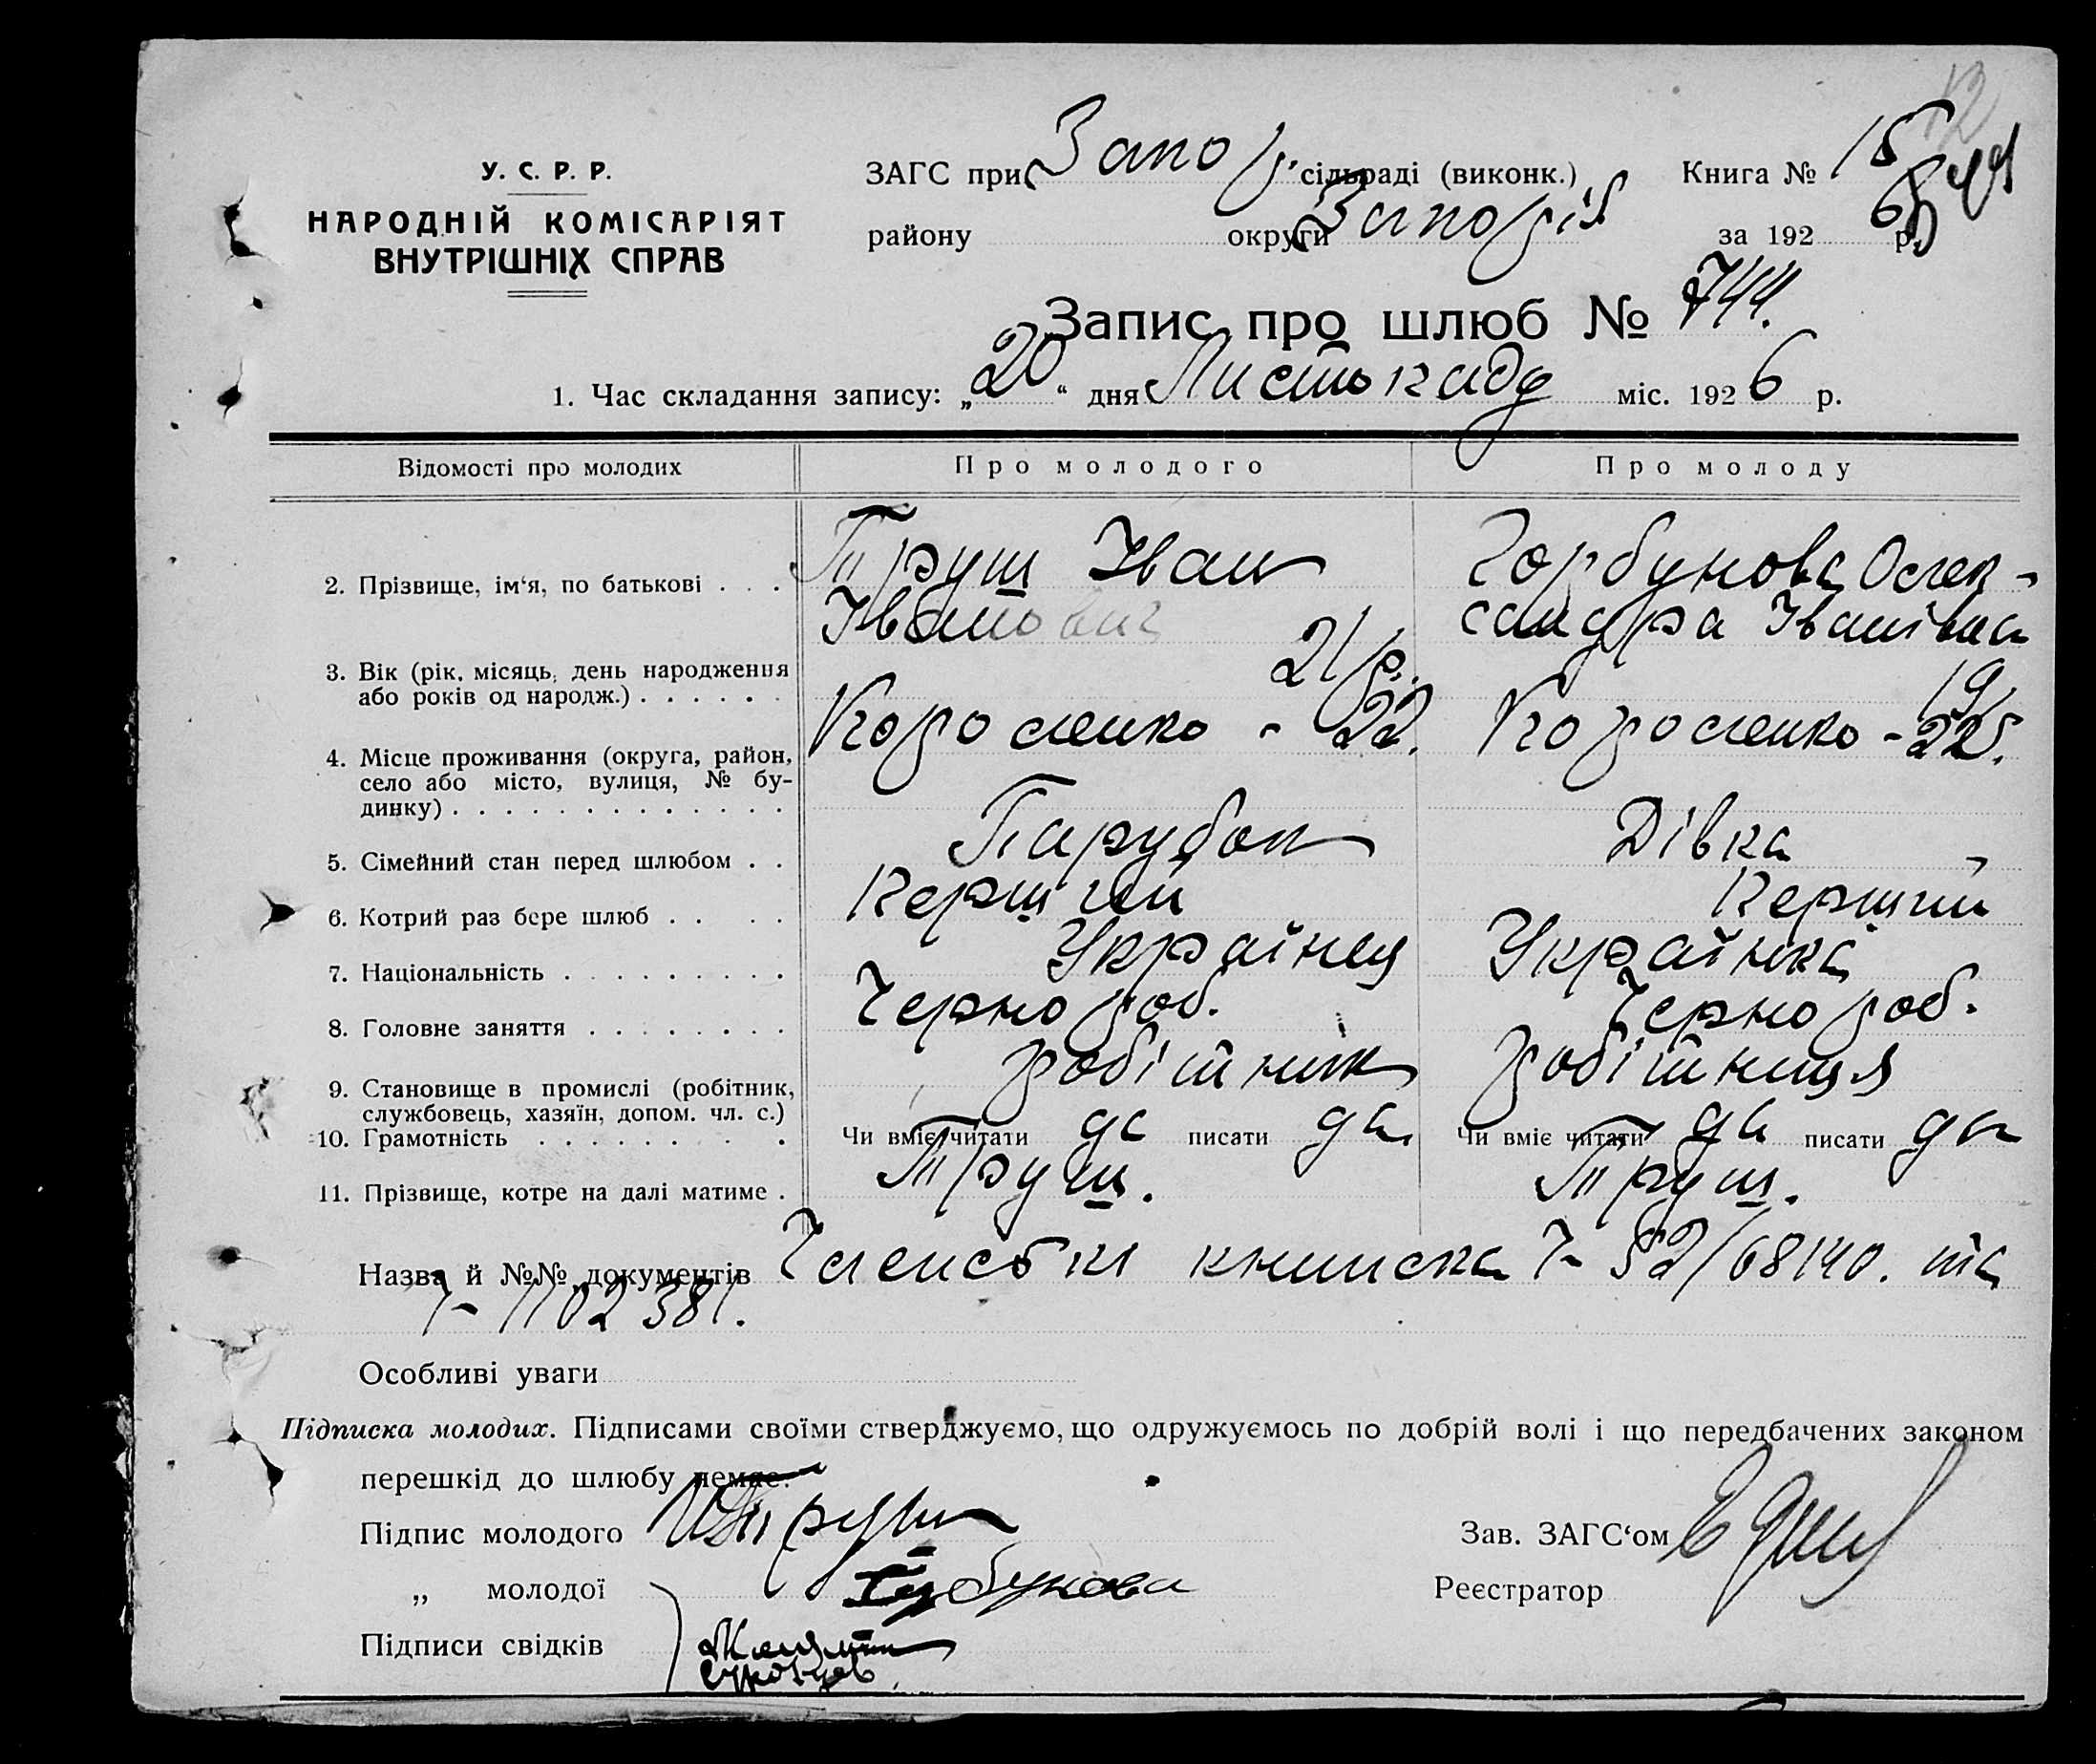 У. С. Р. Р.
НАРОДНІЙ КОМІСАРІЯТ
ВНУТРІШНІХ СПРАВ
ЗАГС при Запор. сільраді (виконк.) Книга № 15
району округи Запоріз за 1926 р.
Запис про шлюб № 744.
1. Час складання запису: „20“ дня Листопаду міс. 1926 р.
Відомості про молодих Про молодого Про молоду
2. Прізвище, ім‘я, по батькові . . . Труш Іван Горбунова Олек-
Іванович сандра Іванівна
3. Вік (рік, місяць, день народження 21 р. 19
або років од народж.) . . . . . .
4. Місце проживання (округа, район, Короленко - 22. Короленко - 22
село або місто, вулиця, № бу-
динку) . . . . . . . . . . . . .
5. Сімейний стан перед шлюбом . . Парубок Дівка
6. Котрий раз бере шлюб . . . . Перший Перший
7. Національність . . . . . . . . . Українец Українка
8. Головне заняття . . . . . . . . Чернороб. Чернороб.
9. Становище в промислі (робітник, робітник робітниця
службовець, хазяїн, допом. чл. с.)
10. Грамотність . . . . . . . . Чи вміє читати да писати да Чи вміє читати да писати да
11. Прізвище, котре на далі матиме . Труш. Труш.
Назва й №№ документів Членські книжка Ч- 52/68140. та
Ч- 1102381.
Особливі уваги
Підписка молодих. Підписами своїми стверджуємо, що одружуємось по добрій волі і що передбачених законом
перешкід до шлюбу немає.
Підпис молодого Труш Зав. ЗАГС‘ом
„ молодої Горбунова Реєстратор
Підписи свідків